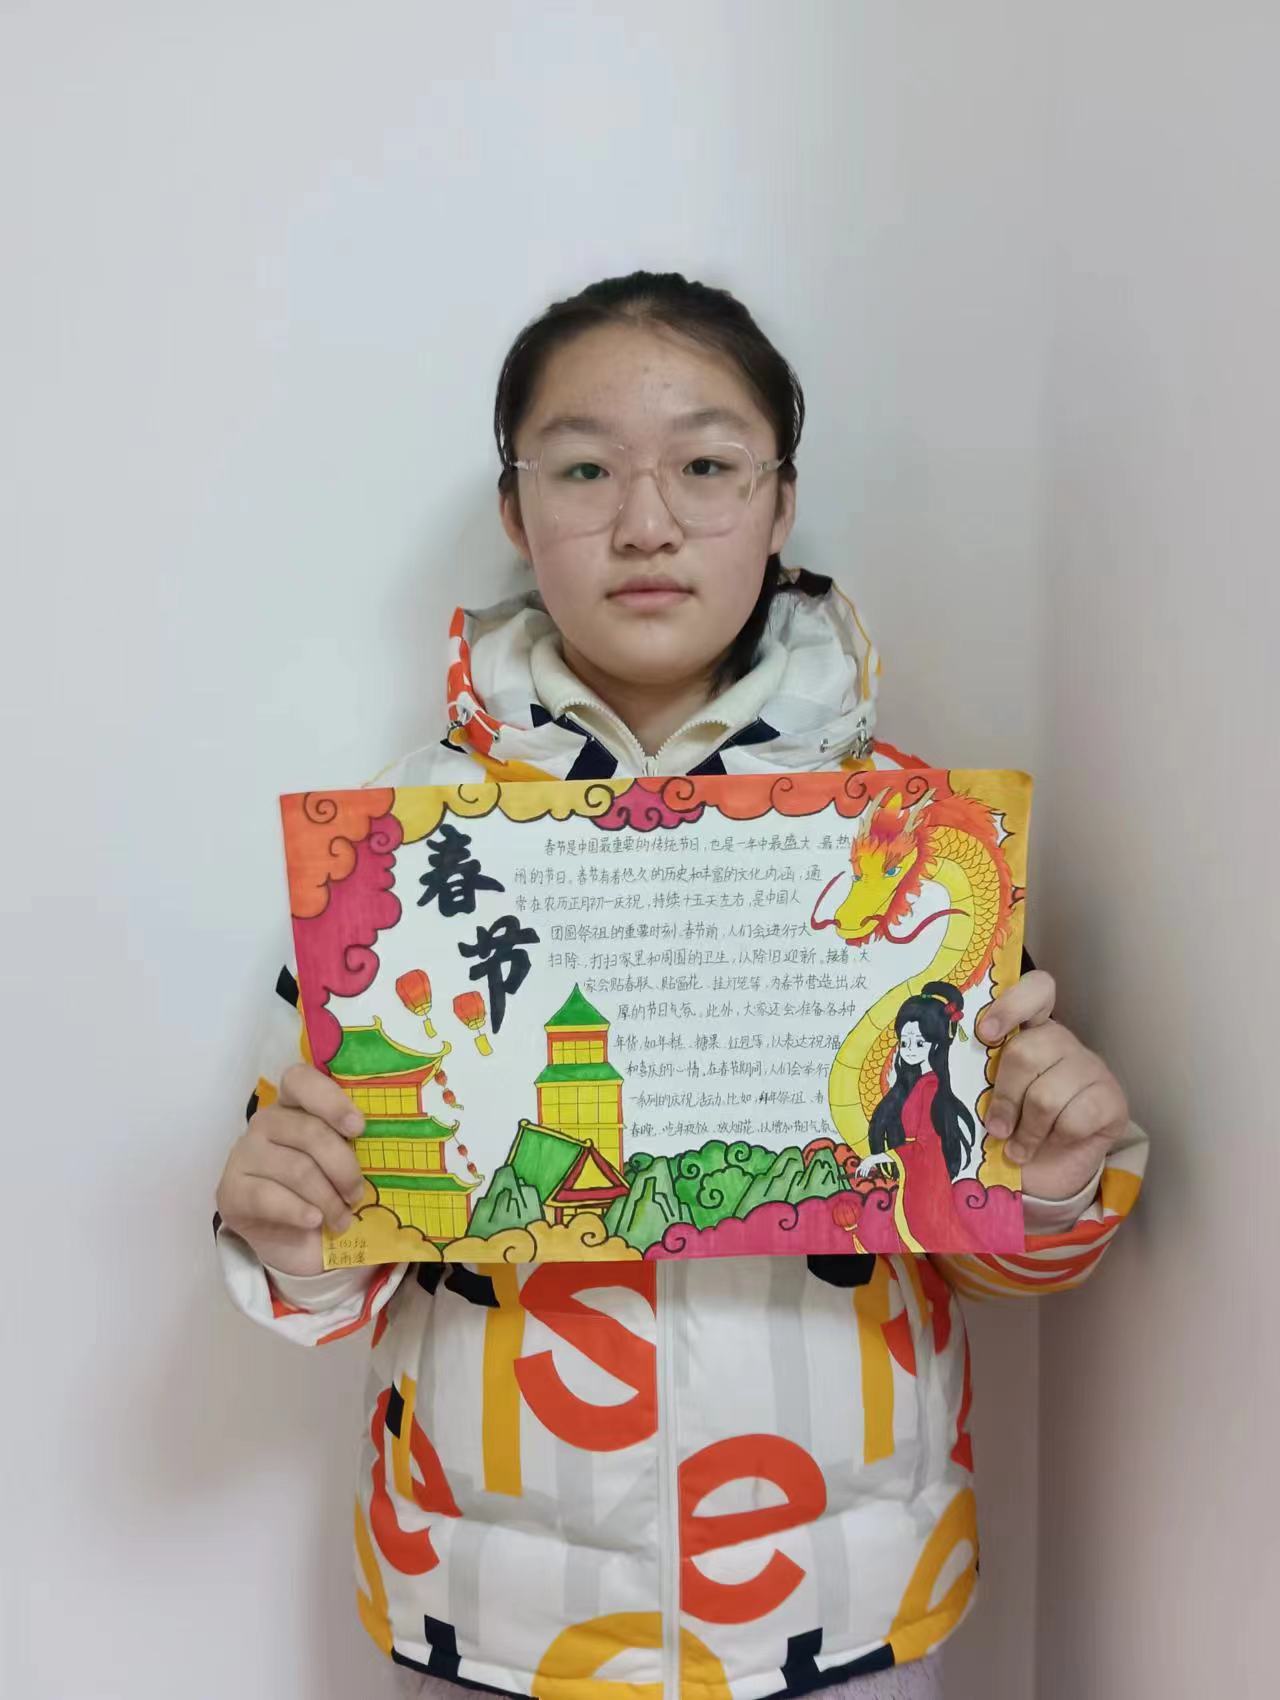 春节
春节是中国最重要的传统节日，也是一年中最盛大、最热
闹的节日。春节有着悠久的历史和丰富的文化内涵，通
常在农历正月初一庆祝，持续十五天左右，是中国人
团圆祭祖的重要时刻。春节前，人们会进行大
扫除，打扫家里和周围的卫生，以除旧迎新。接着，大
家会贴春联、贴窗花、挂灯笼等，为春节营造出浓
厚的节日气氛。此外，大家还会准备各种
年货，如年糕、糖果、红包等，以表达祝福
和喜庆的心情。在春节期间，人们会举行
一系列的庆祝活动。比如，拜年祭祖、看
春晚、吃年夜饭、放烟花，以增加节日气氛。
五(5)班
段雨
se
e